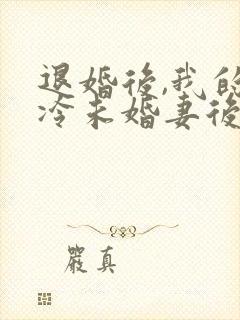 退婚後,我的
冷未婚妻後
嚴真